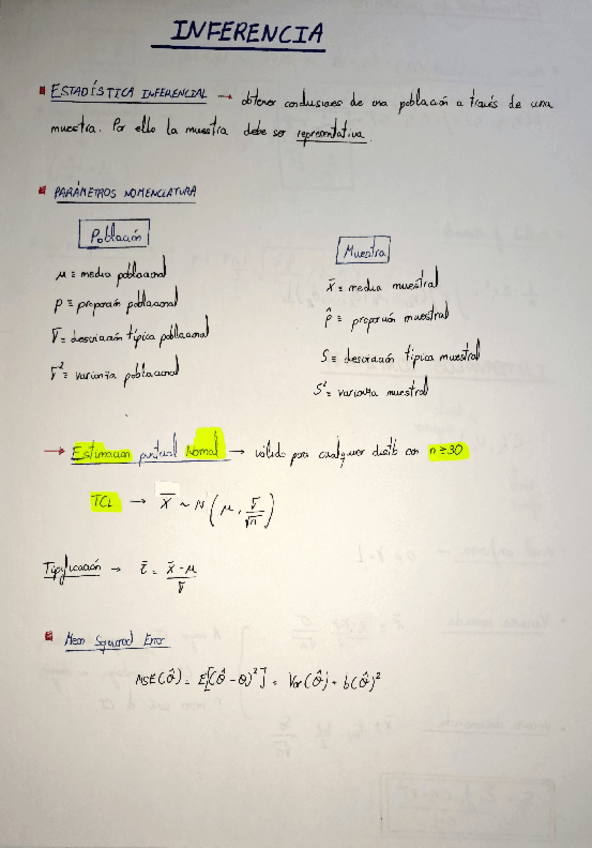 INFERENCIA
ESTADÍSTICA INFERENCIAL → obtener conclusiones de una población a través de una
muestra. Por ello la muestra debe ser representativa.
PARÁMETROS NOMENCLATURA
Población
Muestra
μ ≡ media poblacional
p ≡ proporción poblacional
σ ≡ desviación típica poblacional
σ² ≡ varianza poblacional
x̄ ≡ media muestral
p̂ ≡ proporción muestral
S ≡ desviación típica muestral
S² ≡ varianza muestral
→ Estimación puntual Normal → válido para cualquier distib con n≥30
TCL → X̄ ~ N(μ, σ/√n)
Tipificación → z = (x̄ - μ)/σ
Mean Squared Error
MSE(θ̂) = E[(θ̂ - θ)²] = Var(θ̂) + b(θ̂)²